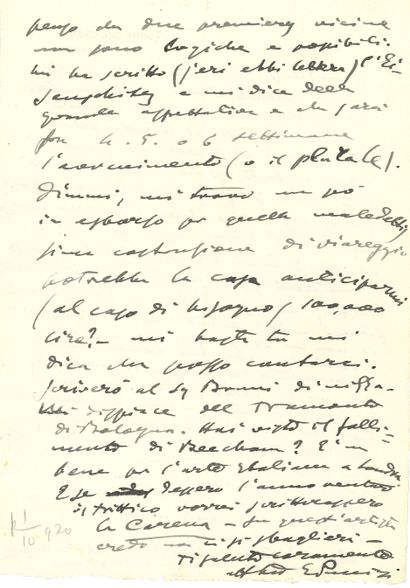 penso che due premières vicine
non sono logiche e possibili.
Mi ha scritto (jeri ebbi lettera) l'Ei-
senschitz e mi dice della
grande aspettativa e che sarà
fra 4. 5. o 6 settimane
l'avvenimento (o il plurale).
Dimmi, mi trovo un pò
in esborso per quella maledettis
sima costruzione di Viareggio
potrebbe la casa anticiparmi
(al caso di bisogno) 100,000
lire? - mi basta tu mi
dica che posso contarci.
Scriverò al Sg
dispiace del Tramonto
di Bologna. Hai visto il falli-
mento di Beecham? È un
bene per l'arte italiana a Londra
E se dessero l'anno venturo
il trittico, vorrei scritturassero
la Carena - su quest'artista
credo non ci si sbaglieri -
Ti saluto caramente
1/10 920